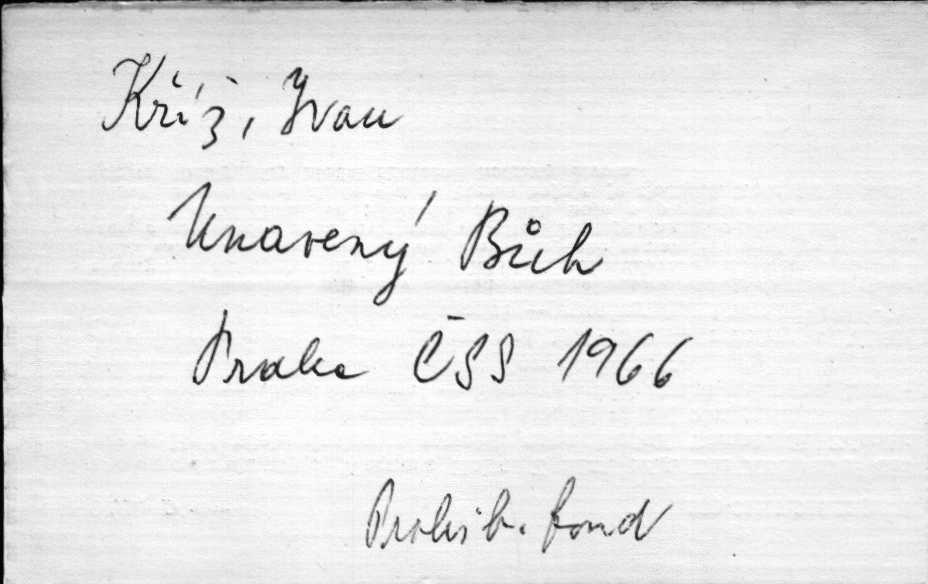 Kříž, Ivan
Unavený Bůh
Praha ČSS 1966
Prohib. fond